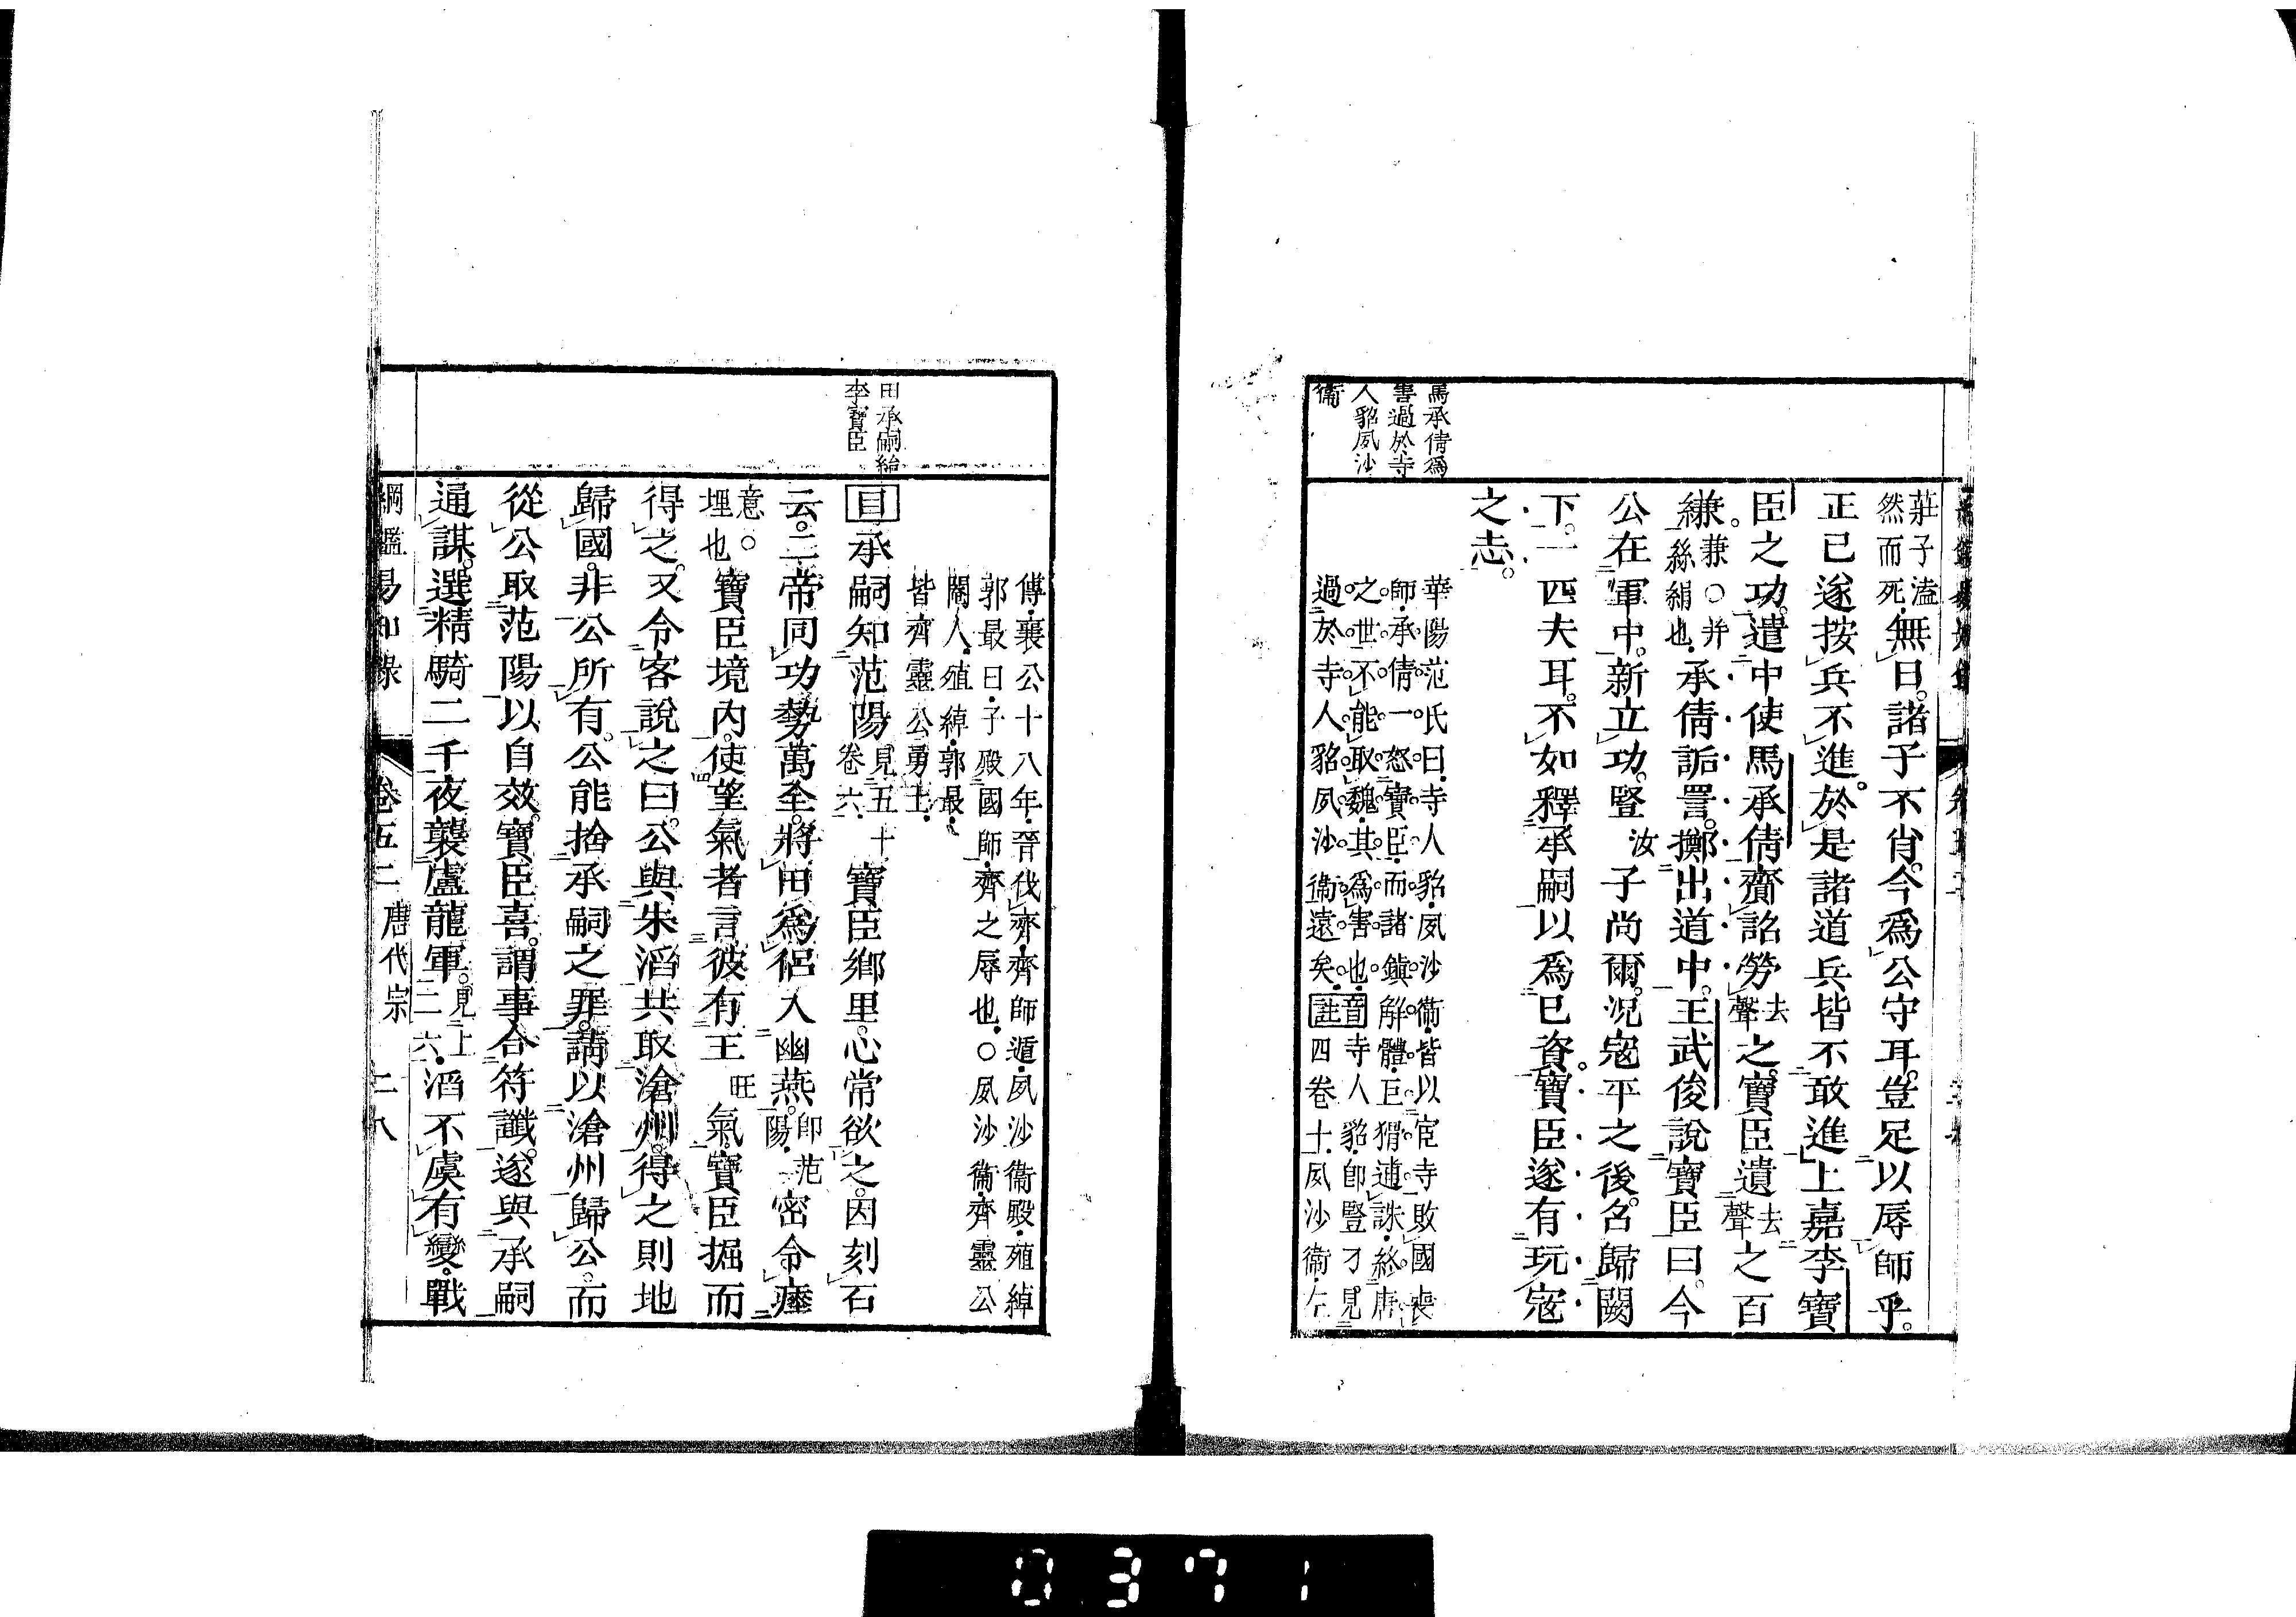 馬承倩爲
害過於寺
人貂夙沙
衞
莊子溘
然而死無日諸子不肖今爲公守耳豈足以辱師乎
正己遂按兵不進於是諸道兵皆不敢進上嘉李寶
臣之功遣中使馬承倩齎詔勞去聲之寶臣遺去聲之百
縑兼○并絲絹也承倩詬詈擲出道中王武俊說寶臣曰今
公在軍中新立功豎汝子尚爾況寇平之後召歸闕
下一匹夫耳不如釋承嗣以爲己資寶臣遂有玩寇
之志
華陽范氏曰寺人貂夙沙衞皆以宦寺敗國喪
師承倩一怒寶臣而諸鎭解體巨猾逋誅終唐
之世不能取魏其爲害也
過於寺人貂夙沙衞遠矣
音註寺人貂卽豎刁見四卷十夙沙衞左
田承嗣紿
李寶臣
傳襄公十八年晉伐齊齊師遁夙沙衞殿殖綽
郭最曰子殿國師齊之辱也○夙沙衞齊靈公
閹人殖綽郭最
皆齊靈公勇士
目承嗣知范陽見五十卷六寶臣鄉里心常欲之因刻石
云二帝同功勢萬全將田爲侶入幽燕卽范陽密令瘞
意○埋也寶臣境內使望氣者言彼有王旺氣寶臣掘而
得之又令客說之曰公與朱滔共取滄州得之則地
歸國非公所有公能捨承嗣之罪請以滄州歸公而
從公取范陽以自效寶臣喜謂事合符讖遂與承嗣
通謀選精騎二千夜襲盧龍軍見上二六滔不虞有變戰
綱鑑易知錄 卷五二 唐代宗 二八
0371